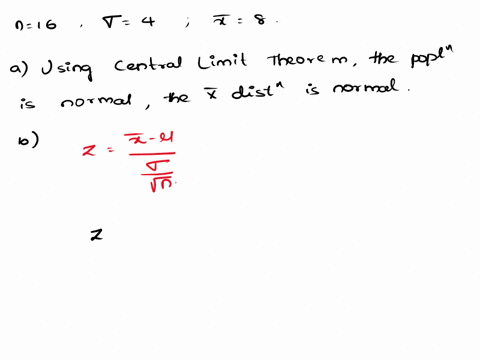 n=16 , σ=4 ; x̄=8.
a) Using Central Limit Theorem, the poplⁿ
is normal, the x̄ distⁿ is normal.
b)
z = (x̄-μ)/(σ/√n)
z